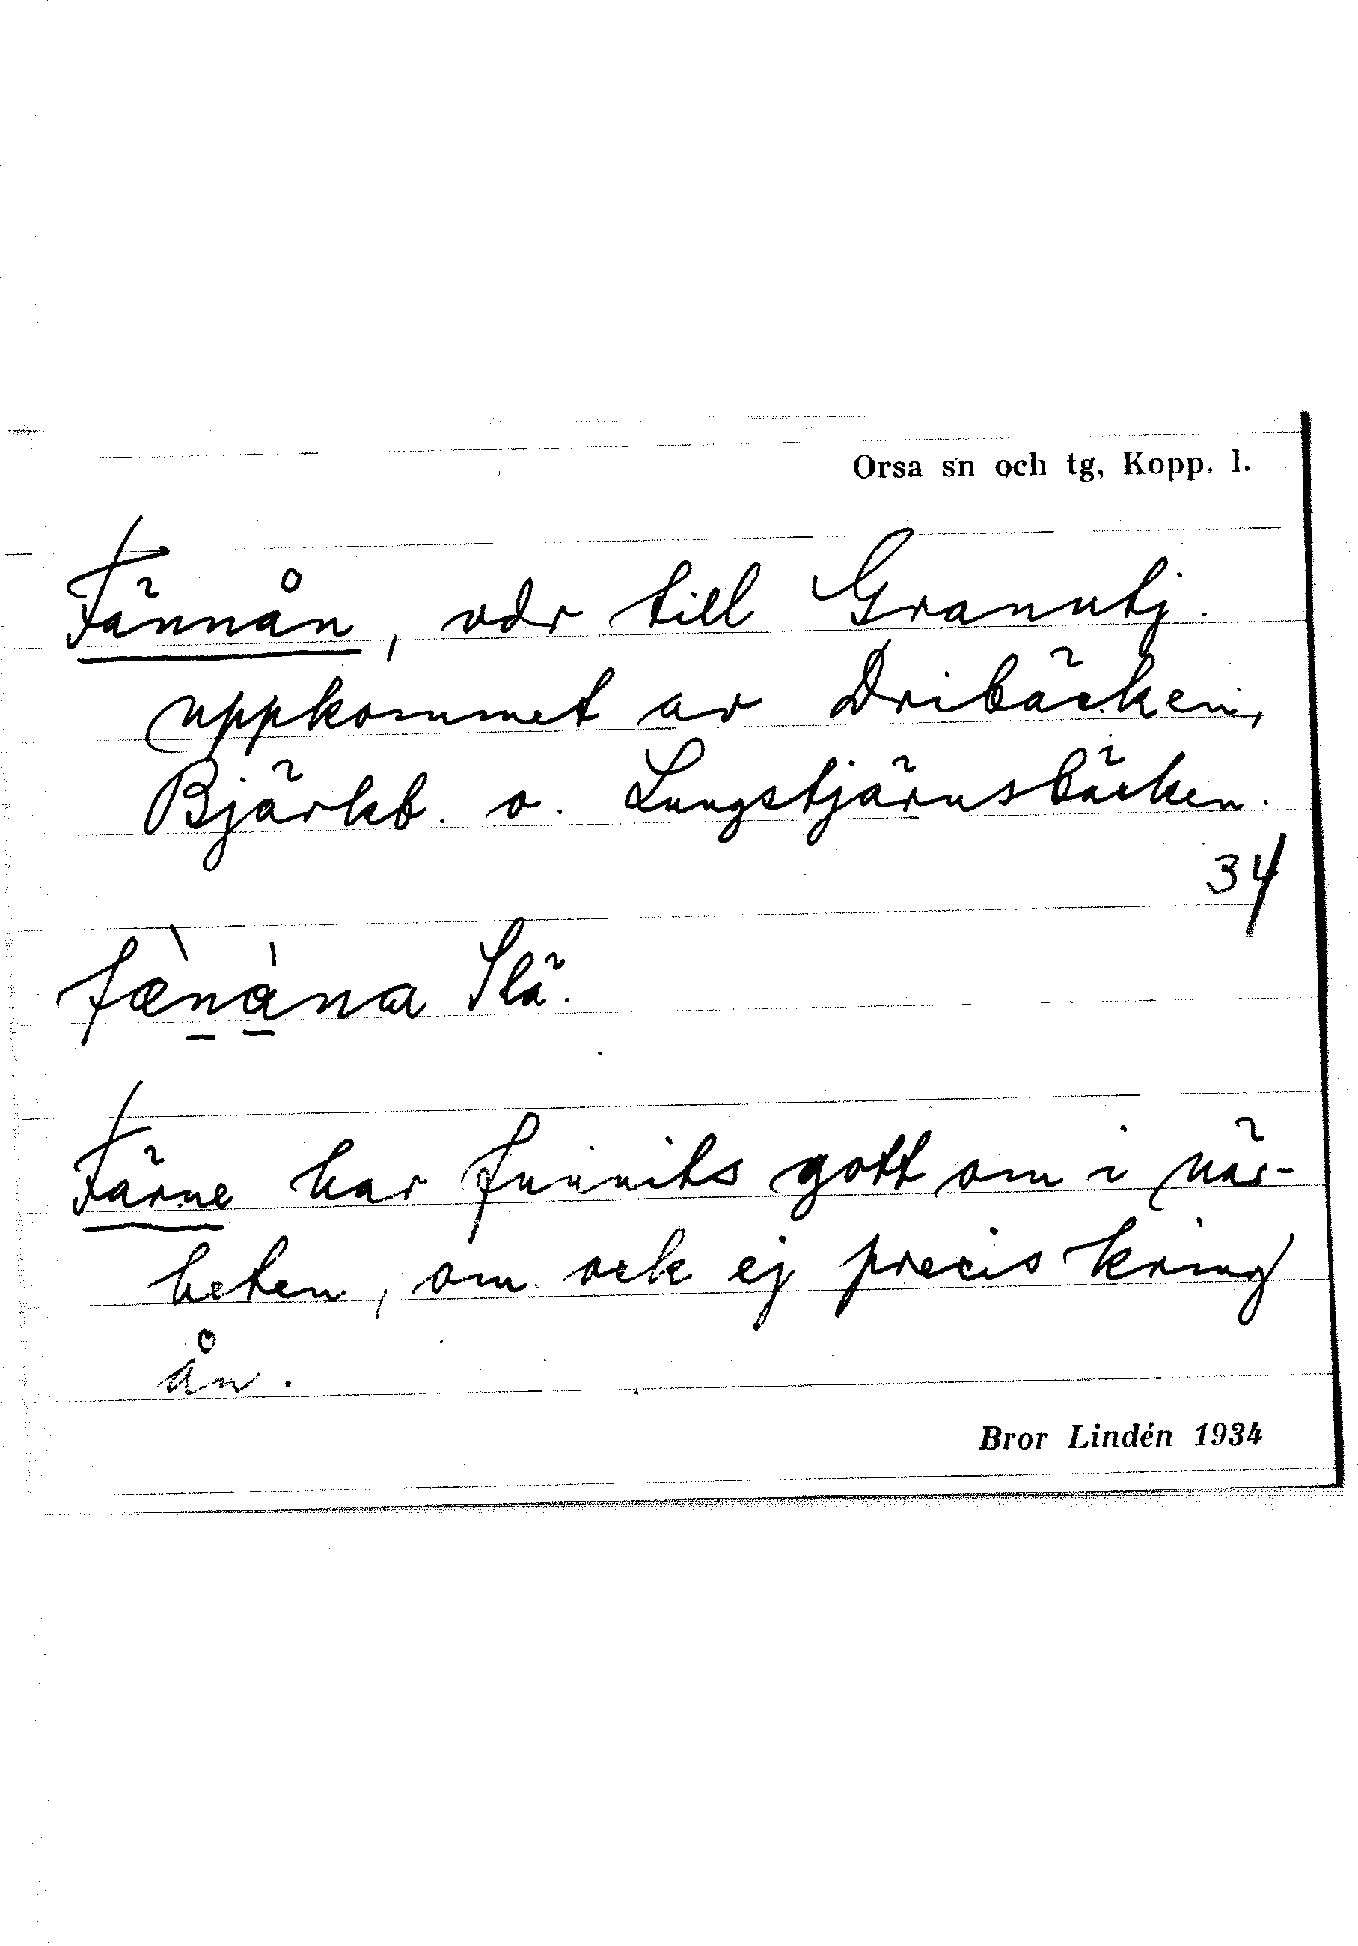 Orsa sn och tg, Kopp. l.
Fännån, vdr till Granutj.
uppkommet av Dribäcken,
Bjärkb. o. Lungstjärnsbäcken.
34
fæ̀nàna Slä.
Färne har funnits gott om i när-
heten, om ock ej precis kring
ån.
Bror Lindén 1934